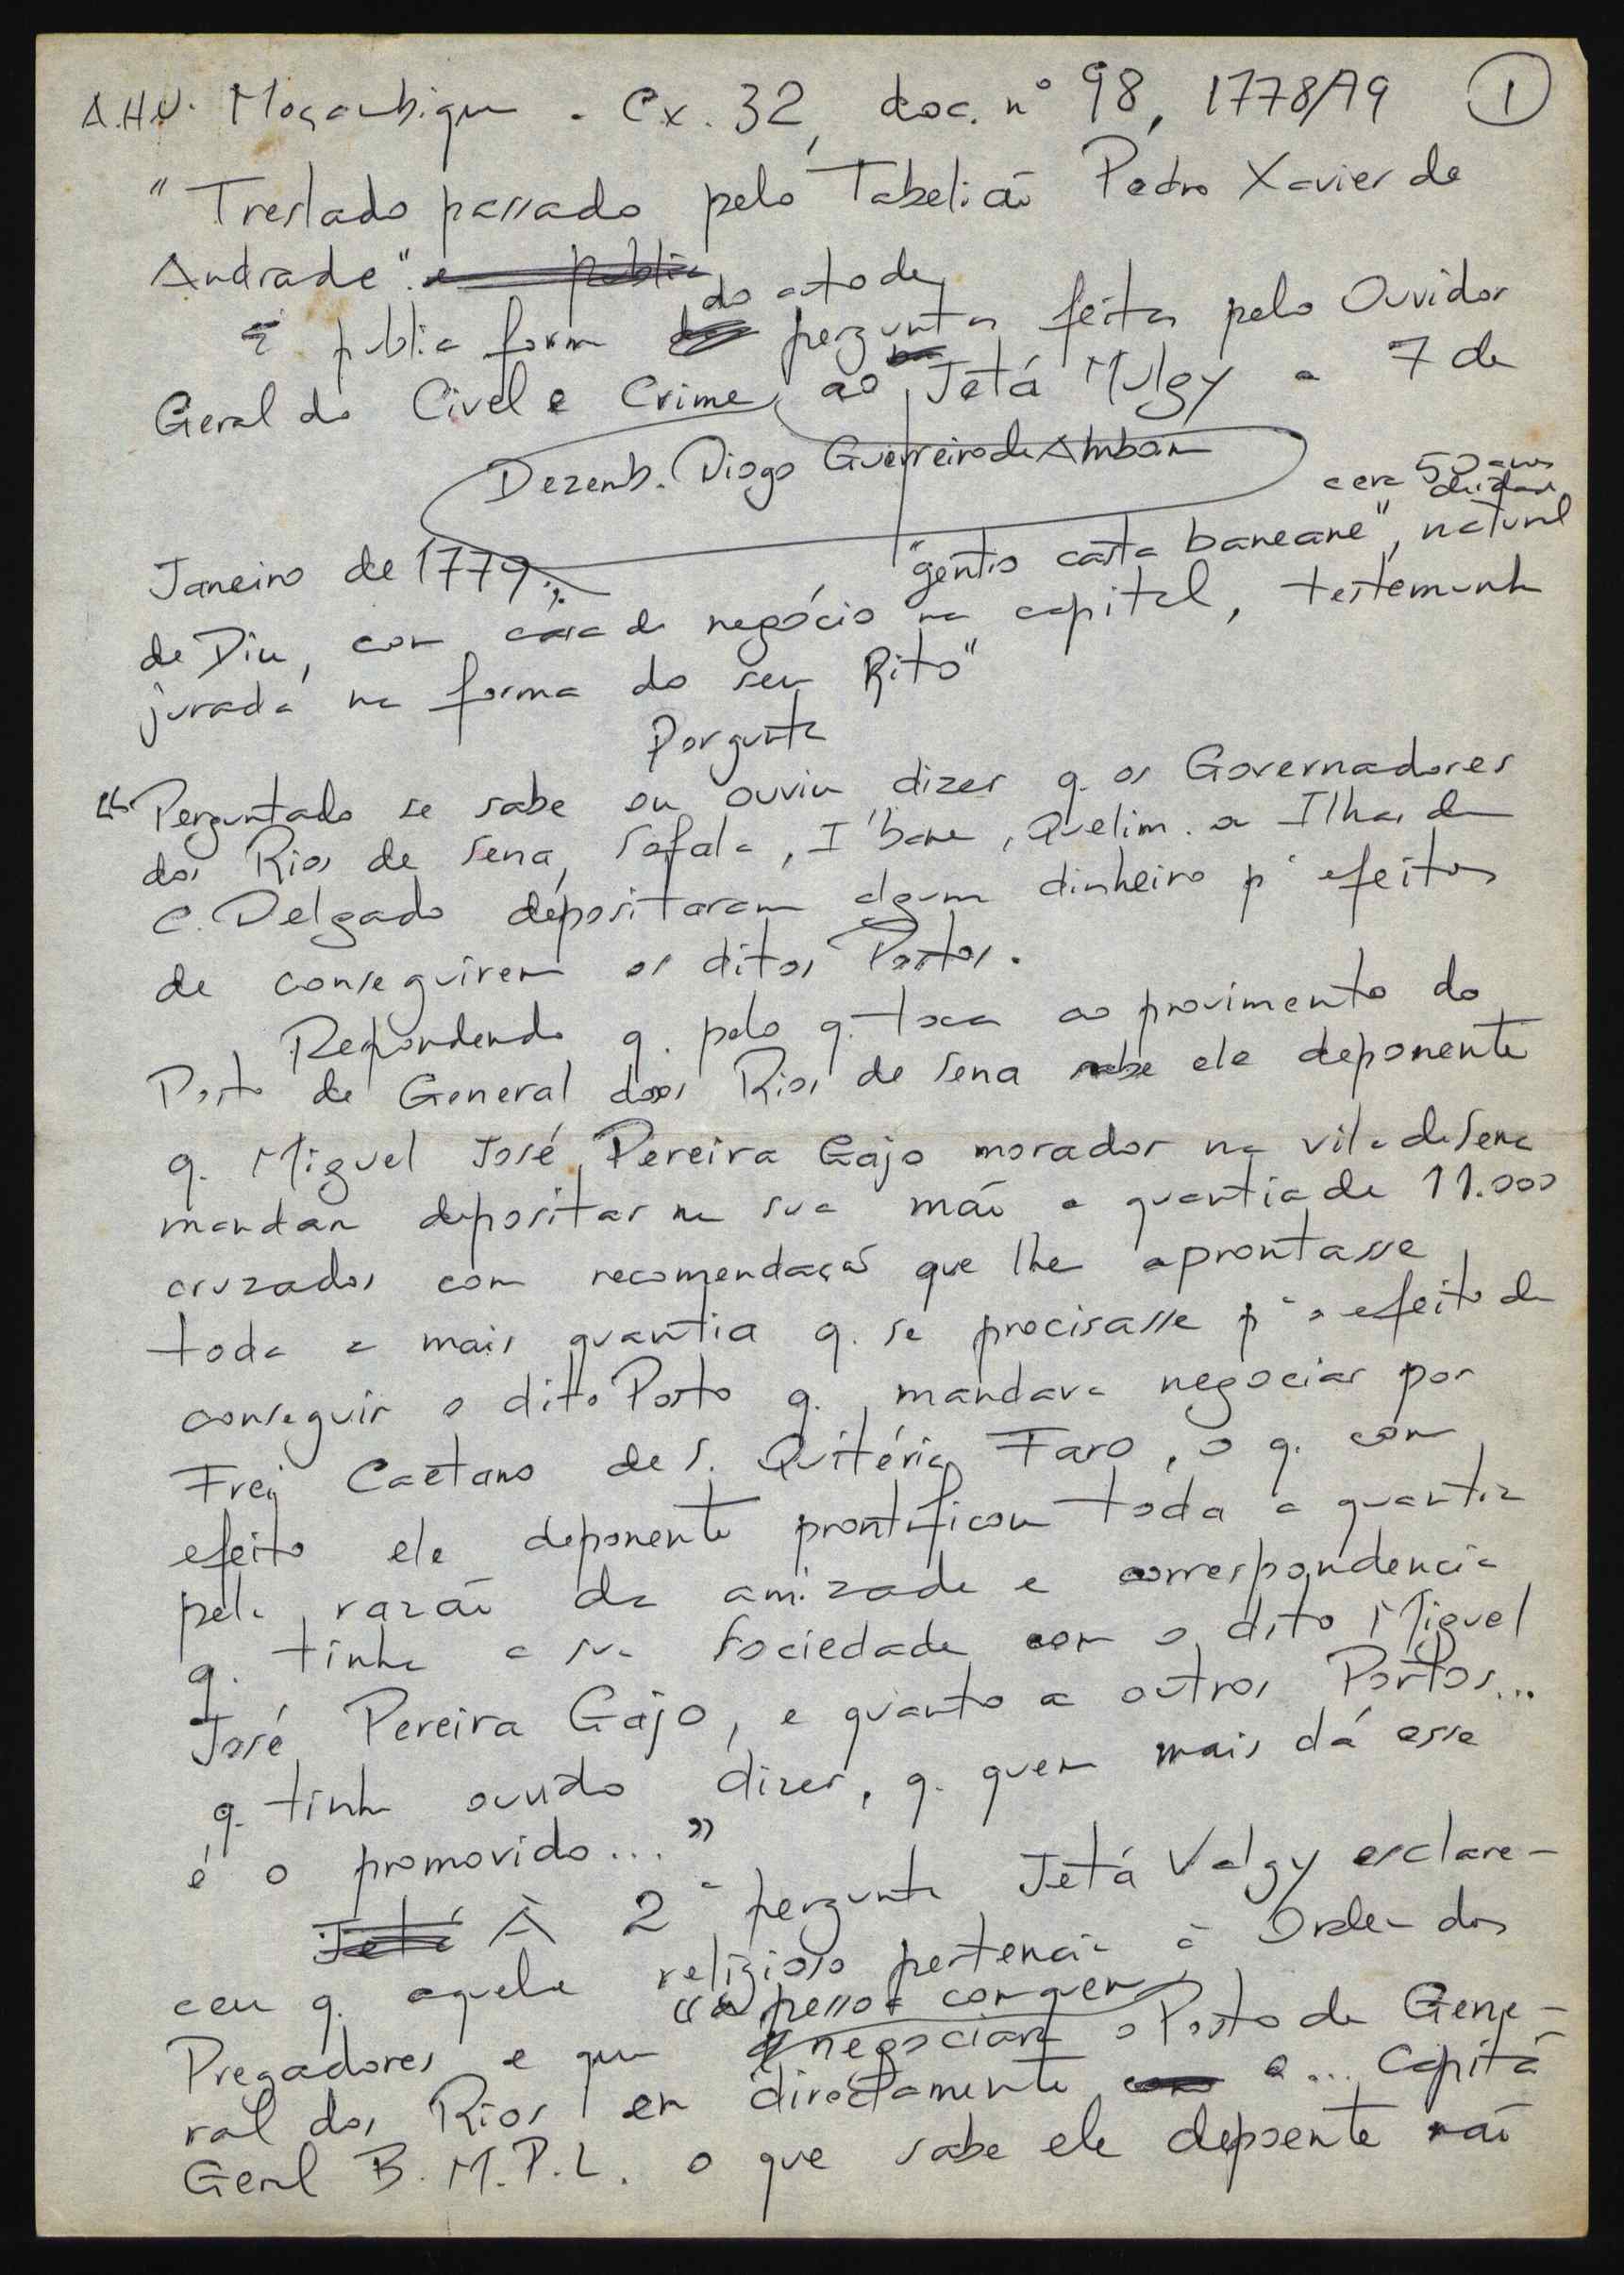 A.H.U. Moçambique - Cx. 32, doc. nº 98, 1778/79 1
"Treslado passado pelo Tabelião Pedro Xavier de
Andrade". e public
do auto de
E publica forma perguntas feitas pelo Ouvidor
Geral do Civel e Crime, ao Jetá Mulgy a 7 de
Dezemb. Diogo Guerreiro de
cerc 50 anos
de idade
Janeiro de 1779; "gentio casta baneane", natural
de Diu, com casa de negócio na capital, testemunha
jurada na forma do seu Rito"
Pergunta
"Perguntado se sabe ou ouviu dizer q. os Governadores
dos Rios de Sena, Sofala, I'bane, Quelim. e Ilhas de
C. Delgado depositaram algum dinheiro pª efeitos
de conseguirem os ditos Postos.
Respondendo q. pelo q. toca ao provimento do
Posto de General dos Rios de Sena sabe ele deponente
q. Miguel José Pereira Gajo morador na vila de Sena
mandara depositar na sua mão a quantia de 11.000
cruzados com recomendação que lhe aprontasse
toda a mais quantia q. se precisasse pª o efeito de
conseguir o dito Posto q. mandava negociar por
Frei Caetano de S. Quitéria Faro, o q. com
efeito ele deponente prontificou toda a quantia
pela razão da amizade e correspondencia
q. tinha a sua Sociedade com o dito Miguel
José Pereira Gajo, e quanto a outros Postos...
q. tinha ouvido dizer, q. quem mais dá esse
é o promovido..."
Jetá À 2ª pergunta Jetá Valgy esclare-
ceu q. aquele religioso pertencia à Ordem dos
"a pessoa com quem
Pregadores e que negociara o Posto de Gene-
ral dos Rios era directamente a... Capitão
Geral B. M. P. L. o que sabe ele depoente não